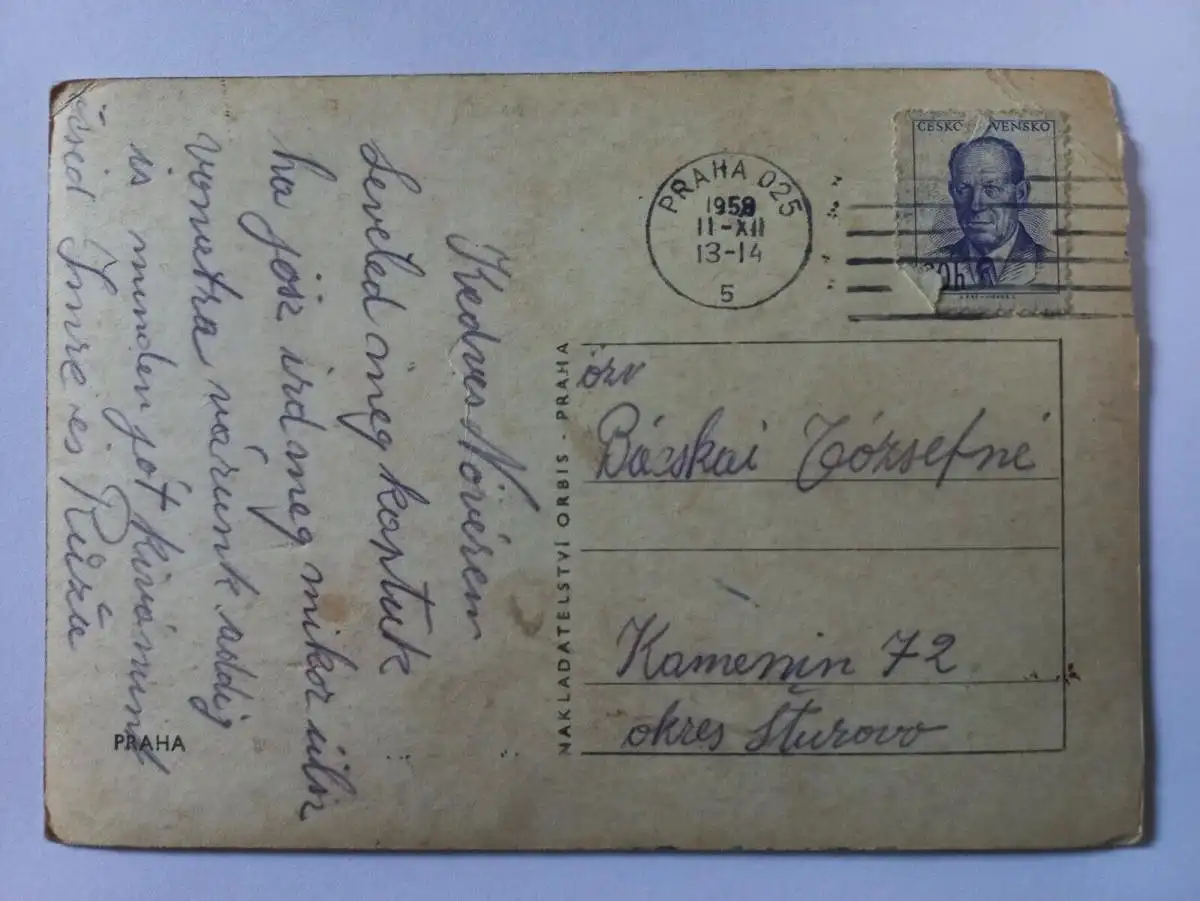 Kedves Növérem
Leveled meg kaptuk
ha jösz ird meg mikor ülsz
vonatra várunk addig
is minden jót kivánunk
Imre és Rüza
PRAHA
NAKLADATELSTVÍ ORBIS - PRAHA
PRAHA 025
1958
11-XII
13-14
5
ČESKO VENSKO
30h
özv
Bácskai Józsefné
Kamenin 72
okres Šturovo